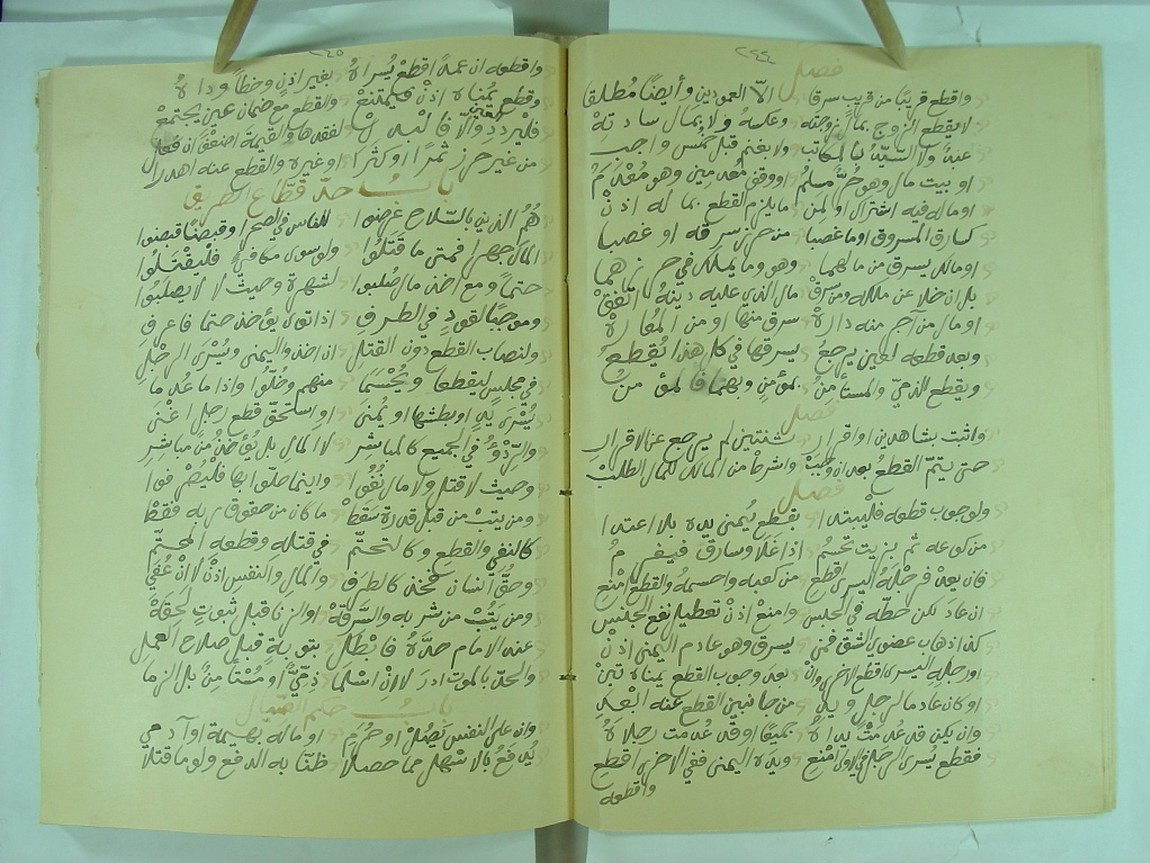 ٢٤٤
فصل
واقطع قريبًا من قريب سرقا الّا العمودين وأيضًا مُطلقا
لا يقطع الزوج بمال زوجته وعكسه ولا بمال سادته
عبدٌ ولا السيّدُ بالمكاتب ولا بغنم قبل خُمس واجب
او بيت مال وهو حُرٌّ مسلمُ او وقف معدمين وهو معدمُ
او ماله فيه اشتراك او لمن ما يلزم القطع بما له اذنْ
كسارق المسروق او ما غصبا من حرز سرقه او غصبا
او مالك يسرق من مالهما وهو وما يملك في حرزهما
بل ان خلا عن ملكه ومن سرقْ مال الذي عليه دينهُ اتّفقْ
او مال من آجر منه دارهْ سرق منها او من المُعارهْ
وبعد قطعه لعين يرجعُ يسرقها في كل هذا يُقطعُ
ويقطع الذميّ والمستأمنُ بمؤمن وبهما فالمؤمن
فصل
واثبت بشاهدين او اقرار ثنتين لم يرجع عن الاقرار
حتى يتمّ القطعُ بعد ان وصبْ واشرط من المالك للمال الطلبْ
فصل
ولوجوب قطعه فليبتدا بقطع يُمنى يده بلا اعتدا
من كوعه ثم بزيت تحسمُ اذا غلا وسارق فيغرمُ
فان يعدْ فرجلهُ اليسرى اقطع من كعبه واحسمهُ والقطع امنع
ان عاد لكن حطّه في الحبس وامنع اذنْ تعطيل نفع الجنس
كذا ذهاب عضوي الشق فمن يسرق وهو عادم اليمنى اذنْ
او رجله اليسرى اقطع الاخرى وانْ بعد وجوب القطع يمناه تبنْ
او كان عادما لرجل ويد من جانبين القطع عنه ابعد
وان يكن قد عدمتْ يداهُ جميعًا او قد عدمت رجلاهُ
فقطع يُسرى الرجل في الاولى امنع ويده اليمنى ففي الاخرى اقطع
واقطعه
٢٤٥
واقطعه ان عمدًا اقطعْ يُسراهُ بغير اذن وخطاً وداهُ
وقطع يُمناه اذنْ فيمتنعْ والقطع مع ضمان عين يجتمعْ
فليردد العين والّا فالبدلْ لفقدها والقيمة اضعفْ ان فعلْ
من غير حرز ثمرًا او كثرا او غيره والقطع عنه اهدرا
باب حدّ قطّاع الطريق
هُم الذين بالسلاح عرضوا للناس في الصحرا وقبضًا قبضوا
المال جهرا فمتى ما قتلُوا ولو سوى مكافيءٍ فليُقتلُوا
حتماً ومع اخذ مال صُلبوا لشهرة وحيث لا لا يصلبُوا
وموجبًا لقودٍ في الطرفِ اذا توى يؤخذ حتما فاعرفِ
ولنصاب القطع دون القتلِ ان اخذ واليمنى ويُسرى الرجلِ
في مجلس ليقطعا ويُحسما منهم وخُلّوا واذا ما عُدما
يُسرى يدٍ او بطشها او يُمنى او استحقّ قطع رجل اغنى
والرّدْؤُ في الجميع كالمباشر لا المال بل يُؤخذُ من مباشرِ
وحيث لا قتل ولا مال نُفُوا واينما حلّوا بها فليُصرفوا
ومن يتبْ من قبل قدرة سقطْ ما كان من حقوق ربه فقطْ
كالنفي والقطع وكالتحتّم في قتله وقطعه المحتّم
وحقُّ انسان فخذ كالطرف والمال والنفس اذنْ لا انْ عُفي
ومن يتُبْ من شربه والسّرقهْ او الزنا قبل ثبوتٍ لحقهْ
عند الامام حدّهُ فابطلْ بتوبةٍ قبل صلاح العملِ
والحدّ بالموت ادرَ لا ان اسلما ذِمّيٌّ او مُستأمنٌ بل الزما
باب حكم الصّيال
وان على النفس يَصُلْ او حُرَمِ او ماله بهيمة او آدمي
يُدفعُ بالاسهل مما حصلا ظنّا به الدفع ولو ما قتلا